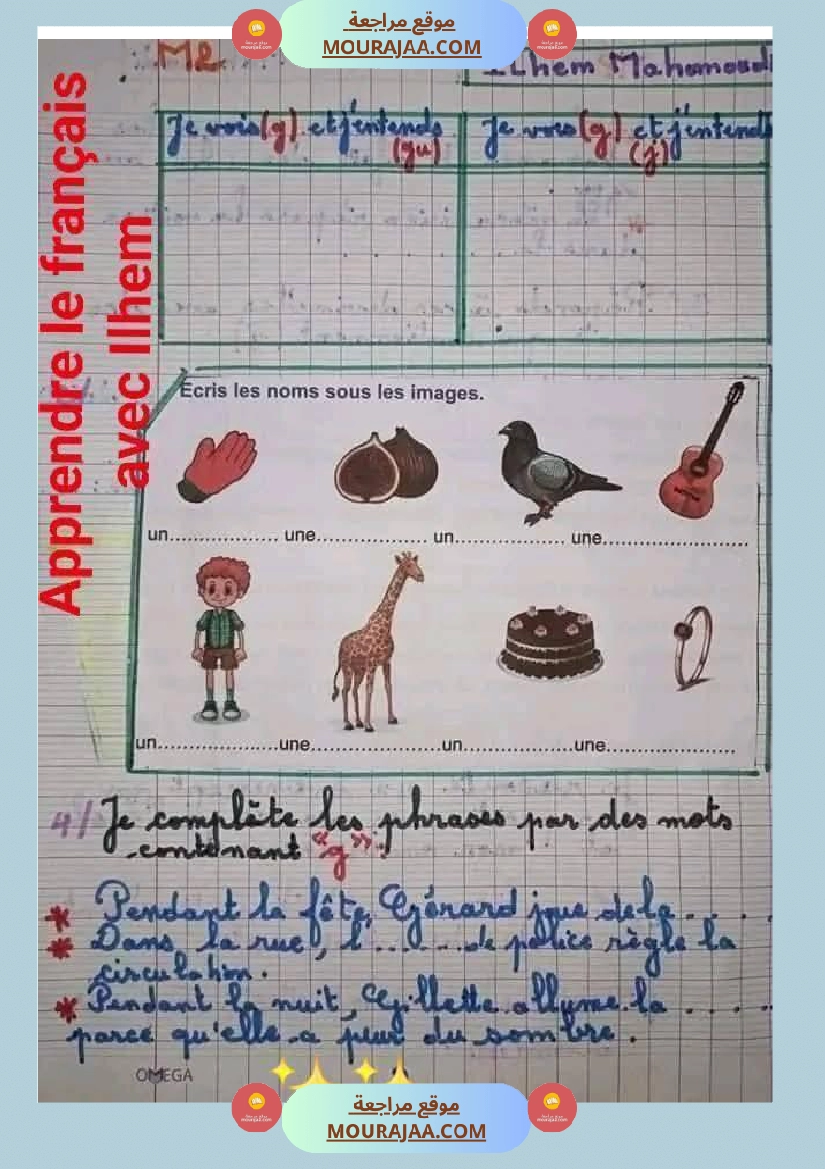 موقع مراجعة
MOURAJAA.COM
Ilhem Mahamoudi
Je vois (g) et j'entends (gu)
Je vois (g) et j'entends (j)
Apprendre le français
avec Ilhem
Ecris les noms sous les images.
un.................. une.................. un.................. une........................
un....................une......................un..................une.....................
4/ Je complète les phrases par des mots
contenant "g":
* Pendant la fête, Gérard joue de la . . .
* Dans la rue, l'. . . . . . de police règle la
circulation.
* Pendant la nuit, Gillette allume la . . . . .
parce qu'elle a peur du sombre.
OMEGA
موقع مراجعة
MOURAJAA.COM